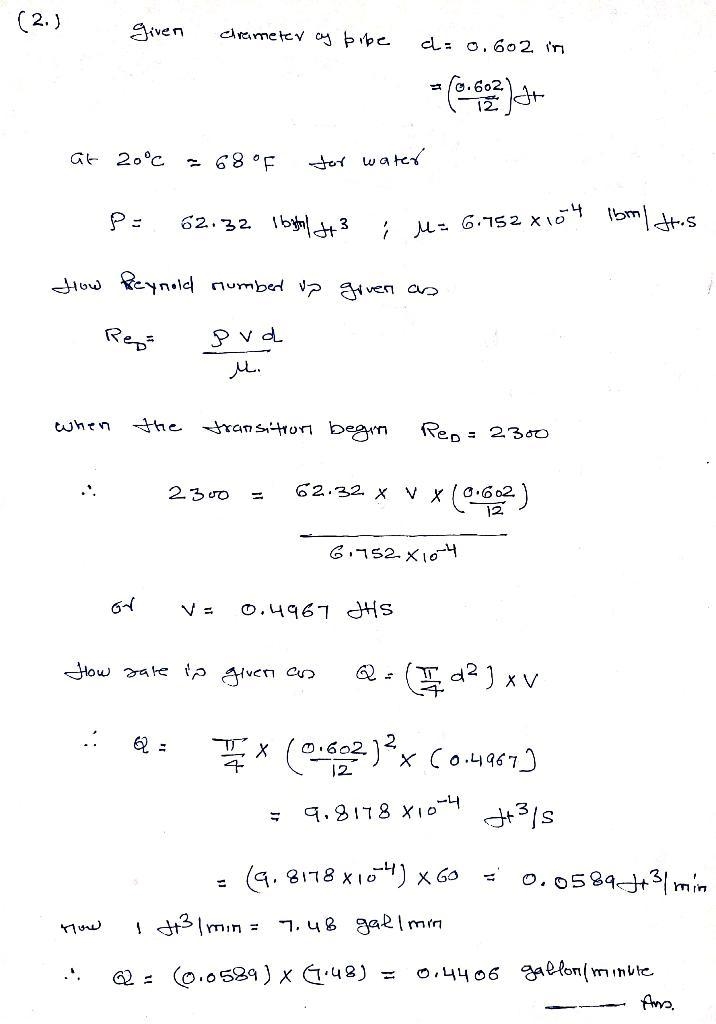 (2.) Given diameter of pipe d = 0.602 in
= (0.602/12) ft
at 20°C = 68°F for water
ρ = 62.32 lbm/ft3 ; μ = 6.752 x 10^-4 lbm/ft.s
flow Reynold number is given as
ReD = ρ v d / μ.
when the transition begin ReD = 2300
∴ 2300 = 62.32 x v x (0.602/12) / 6.752 x 10^-4
or v = 0.4967 ft/s
flow rate is given as Q = (π/4 d^2) x v
∴ Q = π/4 x (0.602/12)^2 x (0.4967)
= 9.8178 x 10^-4 ft^3/s
= (9.8178 x 10^-4) x 60 = 0.0589 ft^3/min
now 1 ft^3/min = 7.48 gal/min
∴ Q = (0.0589) x (7.48) = 0.4406 gallon/minute
Ans.